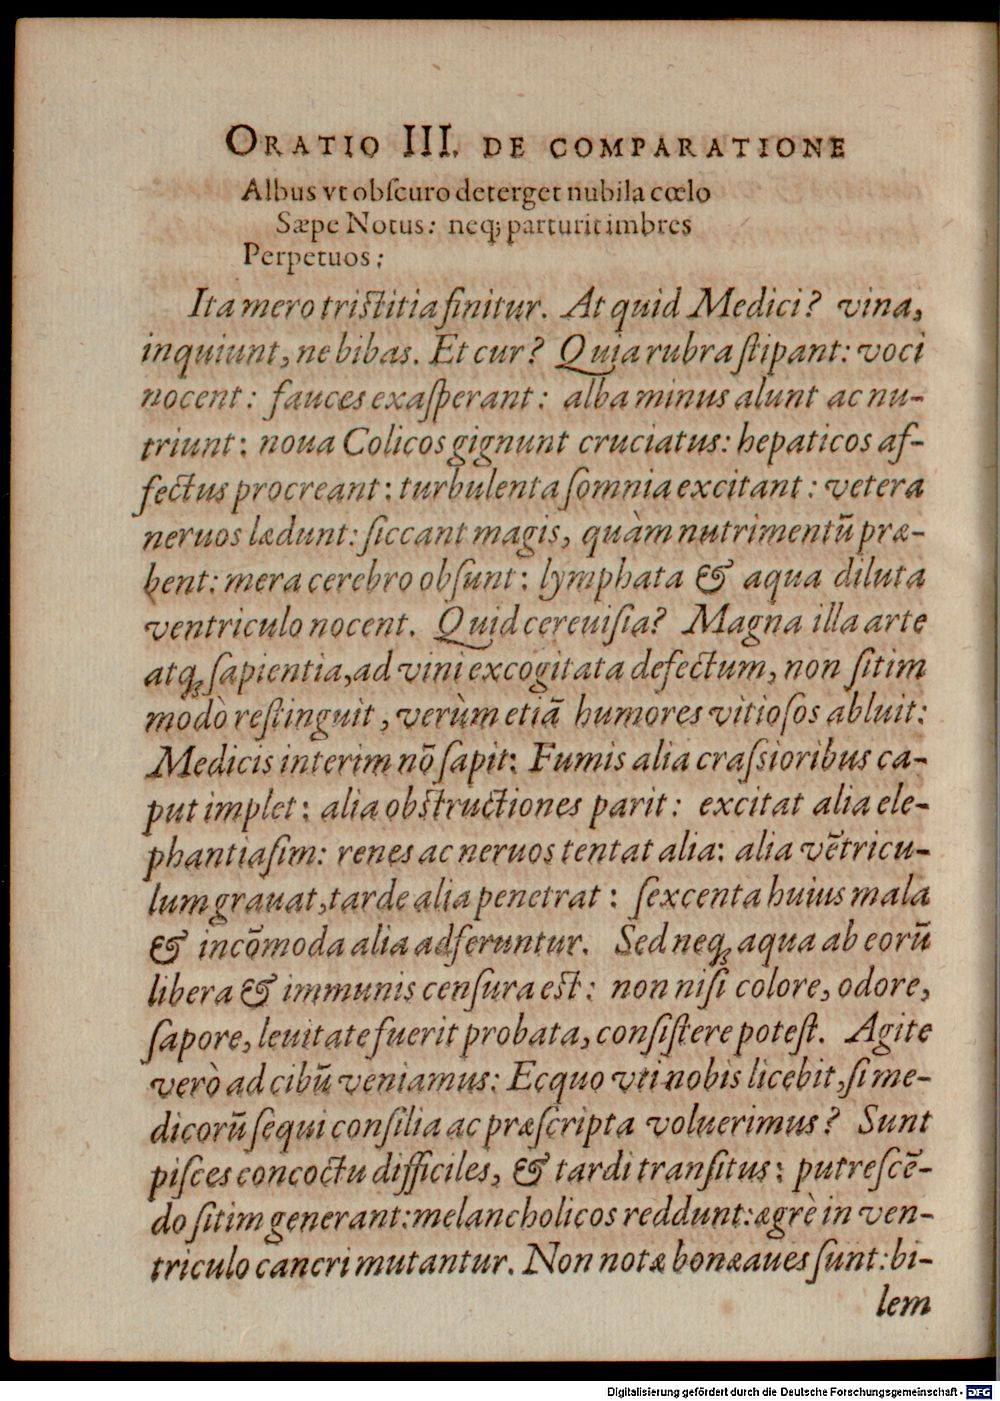 ORATIO III. DE COMPARATIONE
Albus vt obſcuro deterget nubila cœlo
Sæpe Notus: neq; parturit imbres
Perpetuos:
Ita mero triſtitia finitur. At quid Medici? vina,
inquiunt, ne bibas. Et cur? Quia rubra ſtipant: voci
nocent: fauces exaſperant: alba minus alunt ac nu-
triunt: noua Colicos gignunt cruciatus: hepaticos af-
fectus procreant: turbulenta ſomnia excitant: vetera
neruos lædunt: ſiccant magis, quàm nutrimentū præ-
bent: mera cerebro obſunt: lymphata & aqua diluta
ventriculo nocent. Quid cereuiſia? Magna illa arte
atq; ſapientia, ad vini excogitata defectum, non ſitim
modò reſtinguit, verùm etiā humores vitioſos abluit:
Medicis interim nō ſapit: Fumis alia craſsioribus ca-
put implet: alia obſtructiones parit: excitat alia ele-
phantiaſim: renes ac neruos tentat alia: alia vētricu-
lum grauat, tarde alia penetrat: ſexcenta huius mala
& incōmoda alia adferuntur. Sed neq; aqua ab eorū
libera & immunis cenſura eſt: non niſi colore, odore,
ſapore, leuitate fuerit probata, conſiſtere poteſt. Agite
verò ad cibū veniamus: Ecquo vti nobis licebit, ſi me-
dicorū ſequi conſilia ac præſcripta voluerimus? Sunt
piſces concoctu difficiles, & tardi tranſitus: putreſcē-
do ſitim generant: melancholicos reddunt: ægrè in ven-
triculo cancri mutantur. Non notæ bonæ aues ſunt: bi-
lem
Digitalisierung gefördert durch die Deutsche Forschungsgemeinschaft - DFG